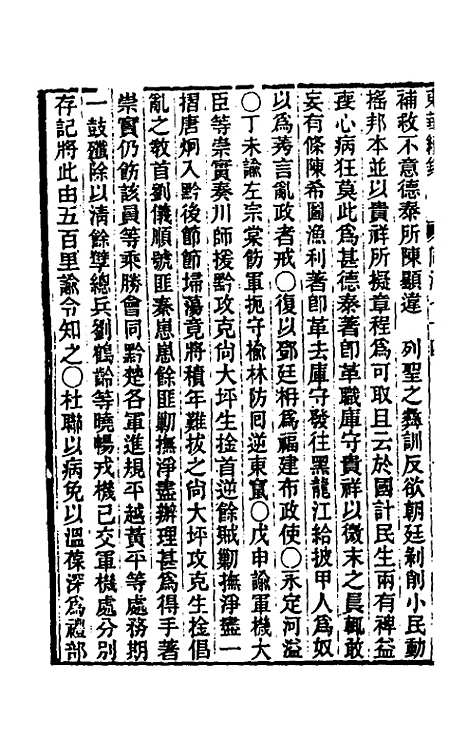 補救不意德泰所陳顯違　列聖之彝訓反欲朝廷剝削小民動
搖邦本並以貴祥所擬章程為可取且云於國計民生兩有裨益
喪心病狂莫此為甚德泰著卽革職庫守貴祥以微末之員輒敢
妄有條陳希圖漁利著卽革去庫守發往黑龍江給披甲人為奴
以為莠言亂政者戒〇復以鄧廷枏為福建布政使〇永定河溢
〇丁未諭左宗棠飭軍扼守榆林防回逆東竄〇戊申諭軍機大
臣等崇實奏川師援黔攻克尙大坪生擒首逆餘賊勦撫淨盡一
摺唐炯入黔後節節埽蕩竟將積年難拔之尙大坪攻克生擒倡
亂之教首劉儀順號匪秦崽崽餘匪勦撫淨盡辦理甚為得手著
崇實仍飭該員等乘勝會同黔楚各軍進規平越黃平等處務期
一鼓殲除以清餘孽總兵劉鶴齡等曉暢戎機已交軍機處分別
存記將此由五百里諭令知之〇杜聯以病免以溫葆深為禮部